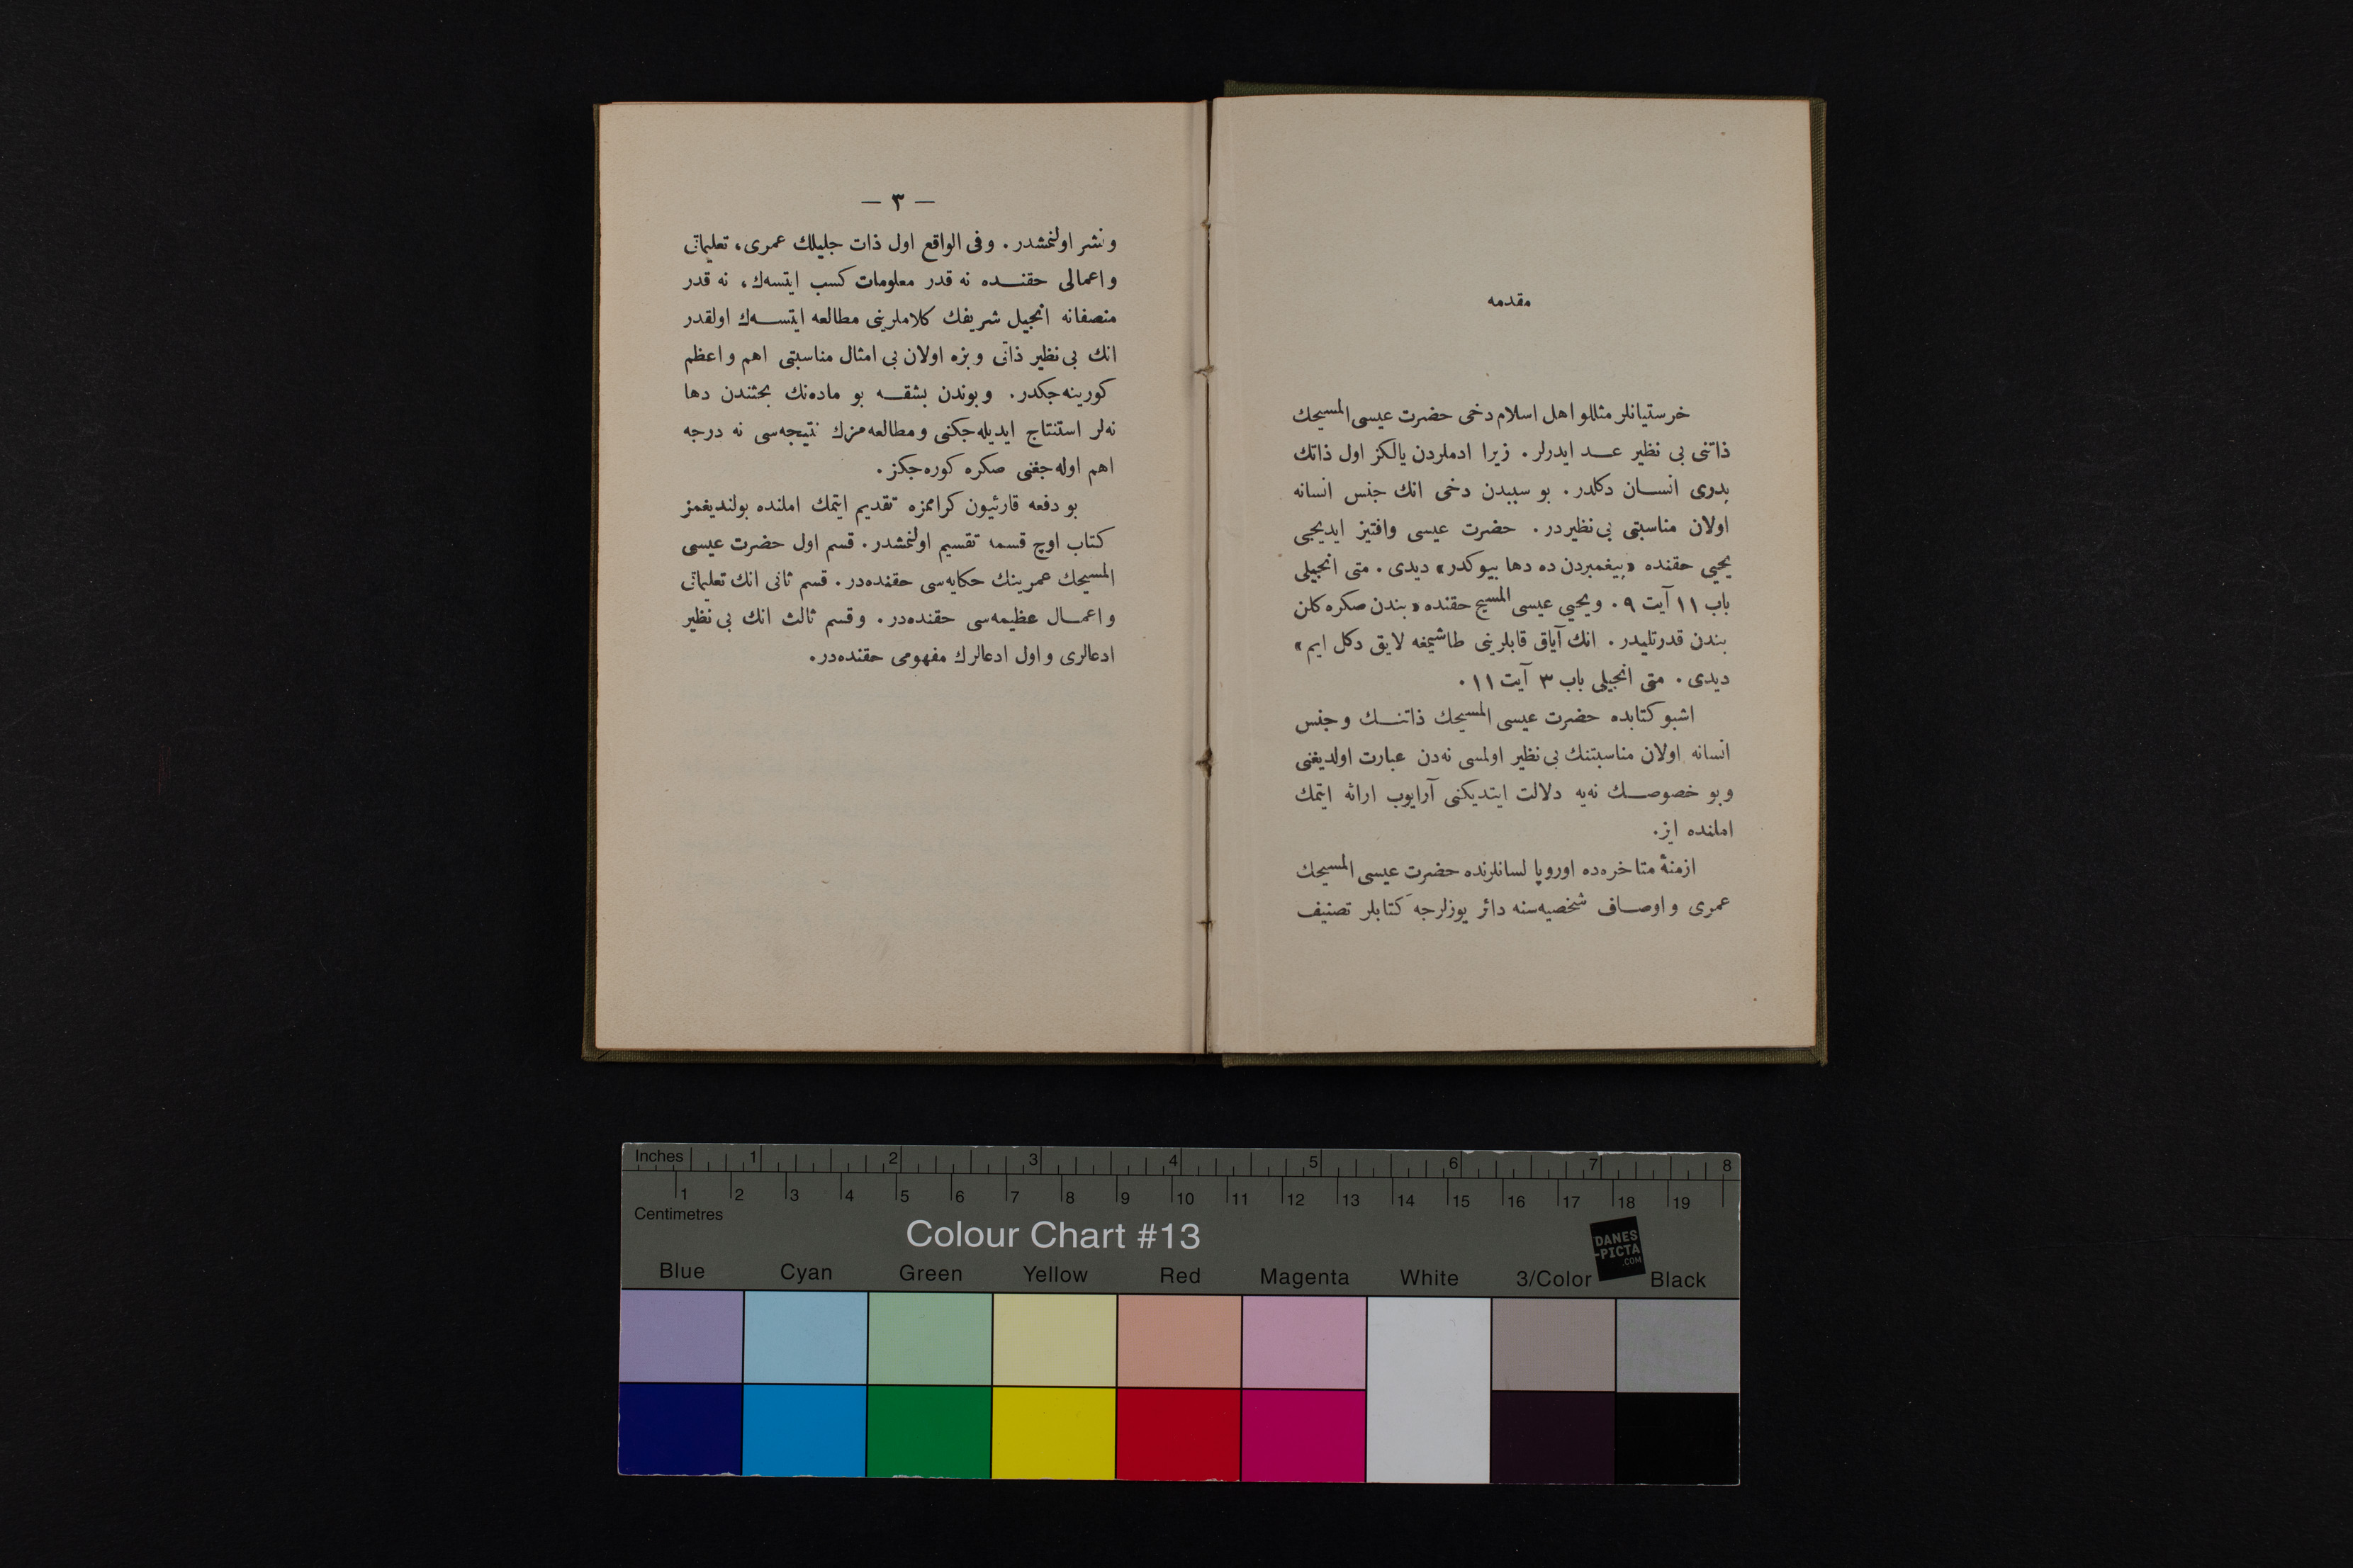 مقدمه
خرستيانلر مثللو اهل اسلام دخى حضرت عيسى المسيحك
ذاتنى بى نظير عــد ايدرلر. زيرا ادملردن يالكز اول ذاتك
پدرى انســان دكلدر. بو سببدن دخى انك جنس انسانه
اولان مناسبتى بى نظيردر. حضرت عيسى وافتيز ايديجى
يحيى حقنده «پيغمبردن ده دها بيوكدر» ديدى. متى انجيلى
باب ١١ آيت ٩. ويحيى عيسى المسيح حقنده «بندن صكره كلن
بندن قدرتليدر. انك آياق قابلرينى طاشيمغه لايق دكل ايم»
ديدى. متى انجيلى باب ٣ آيت ١١.
اشبو كتابده حضرت عيسى المسيحك ذاتنــك وجنس
انسانه اولان مناسبتنك بى نظير اولمسى نه‌دن عبارت اولديغنى
وبو خصوصــك نه‌يه دلالت ايتديكنى آرايوب ارائه ايتمك
املنده ايز.
ازمنۀ متاخره‌ده اوروپا لسانلرنده حضرت عيسى المسيحك
عمرى واوصــاف شخصيه‌سنه دائر يوزلرجه كتابلر تصنيف
— ٣ —
ونشر اولنمشدر. وفى الواقع اول ذات جليلك عمرى، تعليماتى
واعمالى حقنــده نه قدر معلومات كسب ايتسه‌ك، نه قدر
منصفانه انجيل شريفك كلاملرينى مطالعه ايتســه‌ك اولقدر
انك بى نظير ذاتى وبزه اولان بى امثال مناسبتى اهم واعظم
كورينه‌جكدر. وبوندن بشقــه بو ماده‌نك بحثندن دها
نه‌لر استنتاج ايديله‌جكنى ومطالعه‌مزك نتيجه‌سى نه درجه
اهم اوله‌جغنى صكره كوره‌جكز.
بو دفعه قارئيون كرامزه تقديم ايتمك املنده بولنديغمز
كتاب اوچ قسمه تقسيم اولنمشدر. قسم اول حضرت عيسى
المسيحك عمرينك حكايه‌سى حقنده‌در. قسم ثانى انك تعليماتى
واعمــال عظيمه‌سى حقنده‌در. وقسم ثالث انك بى نظير
ادعالرى واول ادعالرك مفهومى حقنده‌در.
Inches 1 2 3 4 5 6 7 8
1 2 3 4 5 6 7 8 9 10 11 12 13 14 15 16 17 18 19
Centimetres
Colour Chart #13
DANES
-PICTA
.COM
Blue Cyan Green Yellow Red Magenta White 3/Color Black